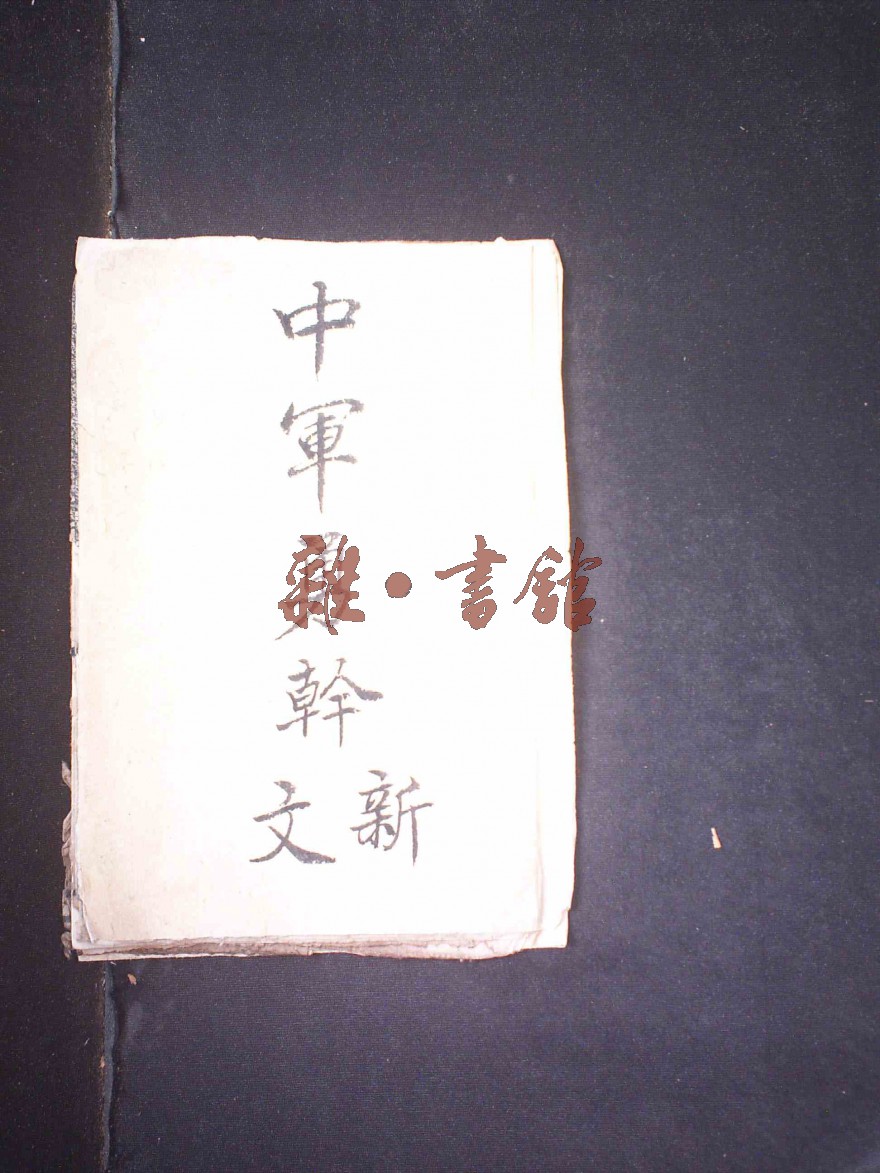 中軍
幹
新
文
雜·書館